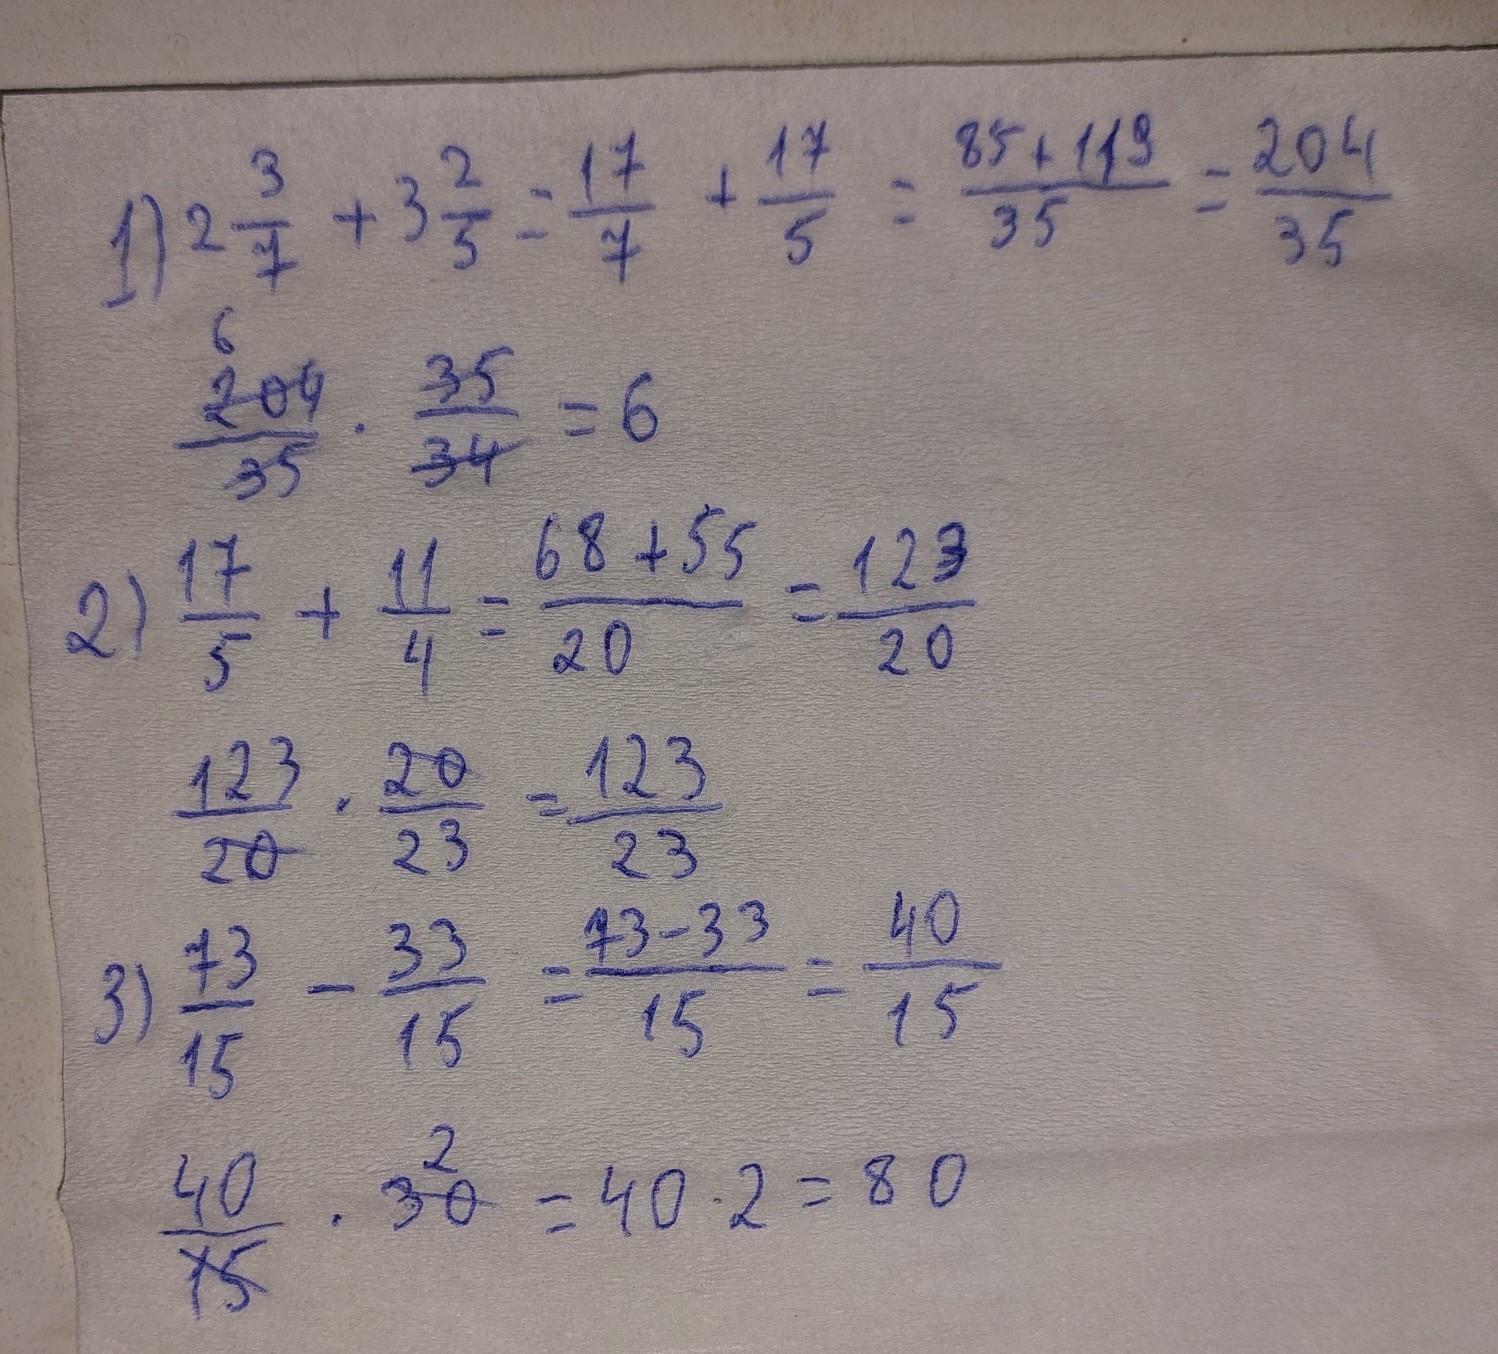 1) 2 3/7 + 3 2/5 = 17/7 + 17/5 = (85+119)/35 = 204/35
6
204/35 · 35/34 = 6
2) 17/5 + 11/4 = (68+55)/20 = 123/20
123/20 · 20/23 = 123/23
3) 73/15 - 33/15 = (73-33)/15 = 40/15
2
40/15 · 30 = 40·2 = 80